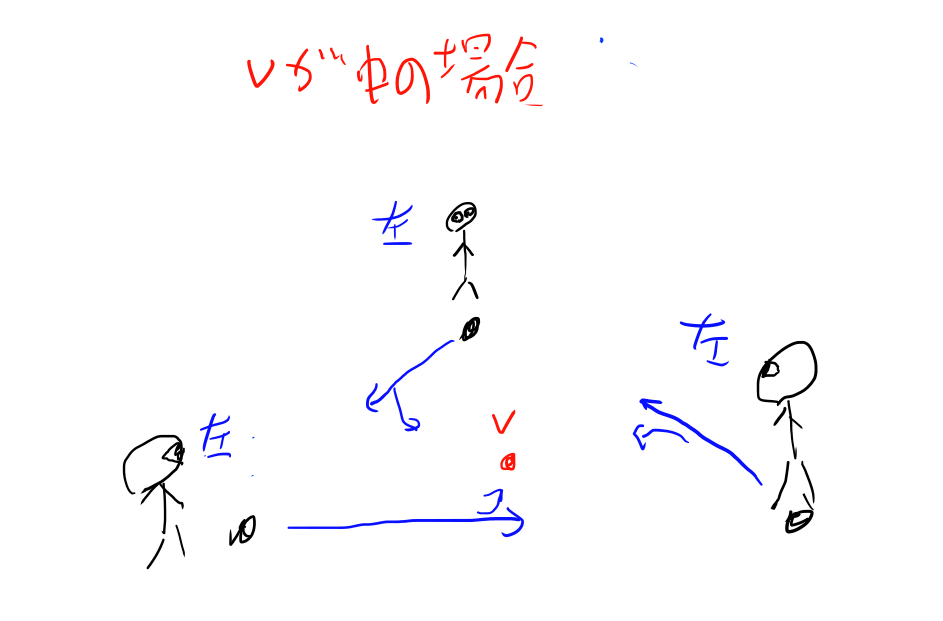 Vが中の場合
左
左
左
V